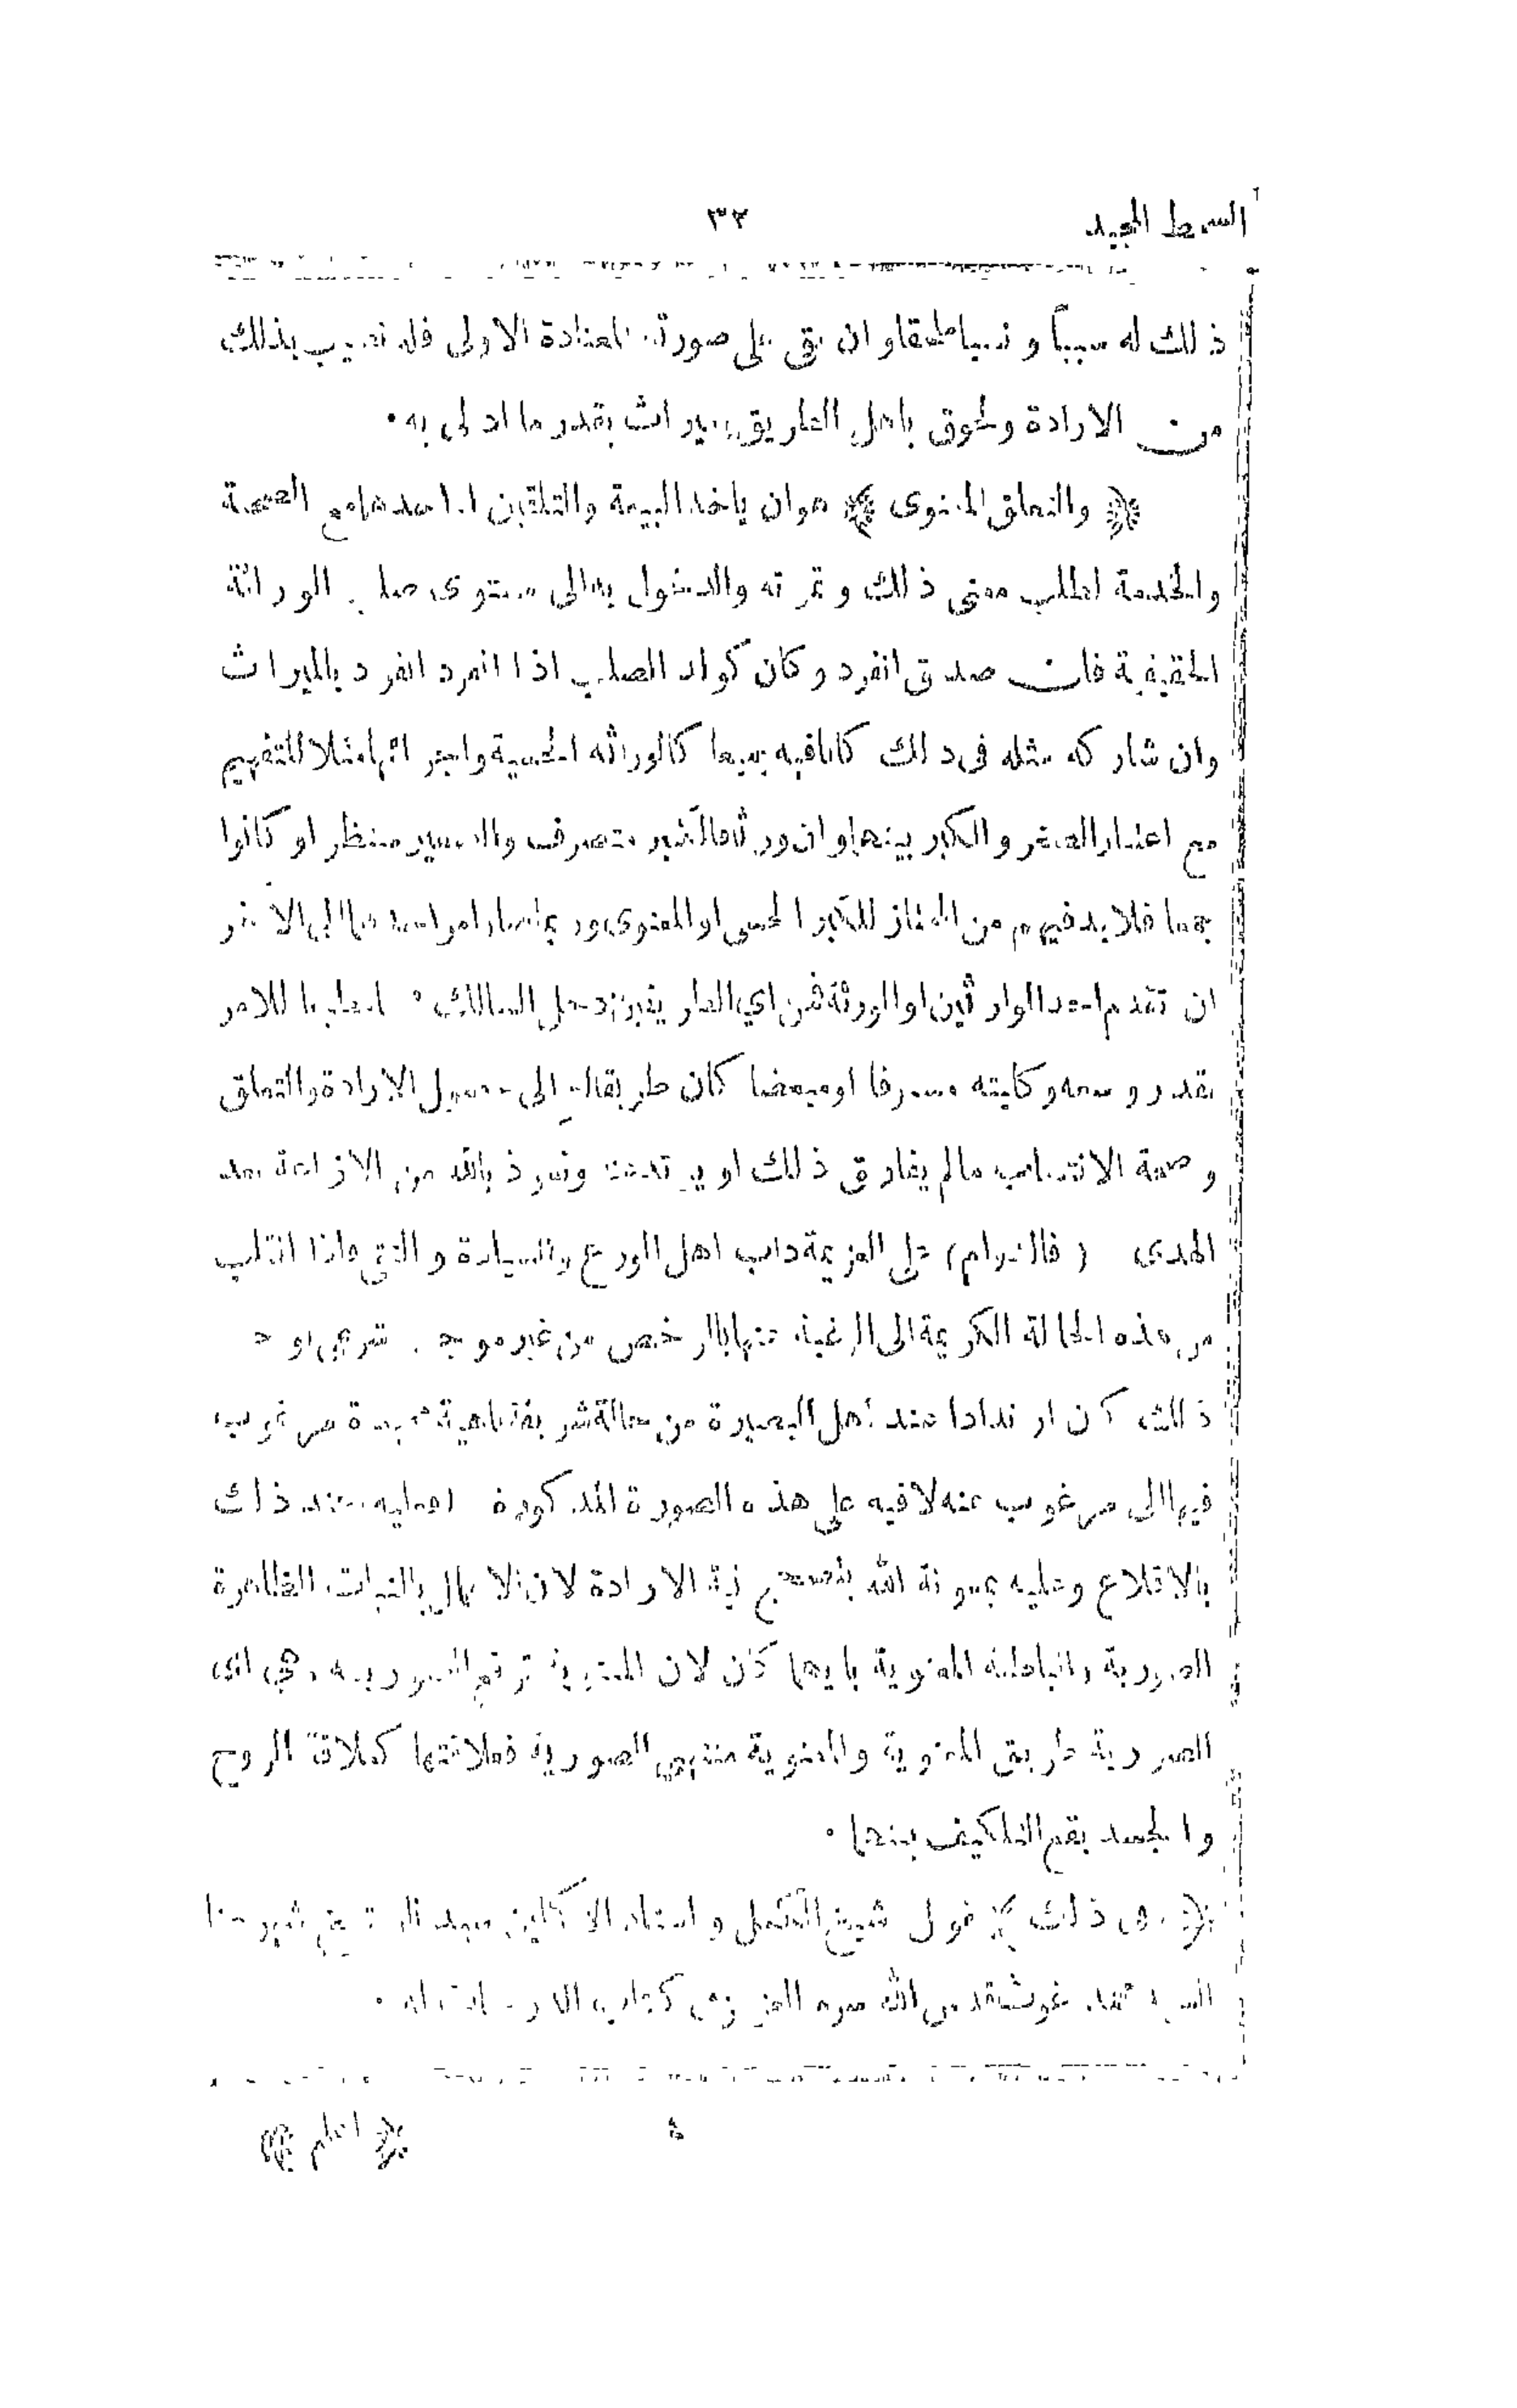 السمط المجيد ٣٢
ذلك له سبباً و نسبا مطلقا و ان بقى على صورته المعتادة الاولى فله نصيب بذلك
من الارادة ولحوق باهل الطريق بميراث بقدر ما ادلى به •
والتعلق المعنوى هو ان ياخذ البيعة والتلقين او احدهما مع الصحبة
والخدمة لطلب معنى ذلك و ثمرته والدخول به الى مستوى صلب الوراثة
الحقيقية فان صدق انفرد وكان كولد الصلب اذا انفرد انفرد بالميراث
وان شاركه مثله فى ذلك كانا فيه جميعا كالوراثة الحسية مثلا للتفهيم
مع اعتبار الصغر والكبر بينهما و ان ورثا فالكبير متصرف والصغير منتظر او كانوا
جمعا فلا بد فيهم من الكبر الحسى او المعنوى الى الآخر
ان تقدم احد الوارثين او الورثة فمن اي الطريقين دخل السالك • للامر
بقدر وسعه و كان طريقا الى حصول الارادة والتعلق
وصحة الانتساب مالم يفارق ذلك او يرتد عنه ونعوذ بالله من الازاغة بعد
الهدى ( فالدوام ) على العزيمة داب اهل الورع والسيادة و التقى فاذا انقلب
من هذه الحالة الكريمة الى الرغبة عنها بالرخص من غير موجب شرعى او
ذلك كان ارتدادا عند اهل البصيرة من حالة شريفة مرغوب
فيها الى مرغوب عنه لا فيه على هذه الصورة المذكورة فعليه عند ذلك
بالاقلاع وعليه بمعونة الله بتصحيح نية الارادة لان الاعمال بالنيات الظاهرة
الصورية والباطنة المعنوية بايهما كان لان المعنوية الصورية هى اى
الصورية طريق المعنوية والمعنوية منتهى الصورية فعلاقتهما كعلاقة الروح
والجسد يقع التكليف بينهما •
ذلك قول شيخ الكمل و استاد الاكملين شيخ شيوخنا
السيد محمد غوث قدس الله سره العزيز فى كتاب •
٤ اعلم